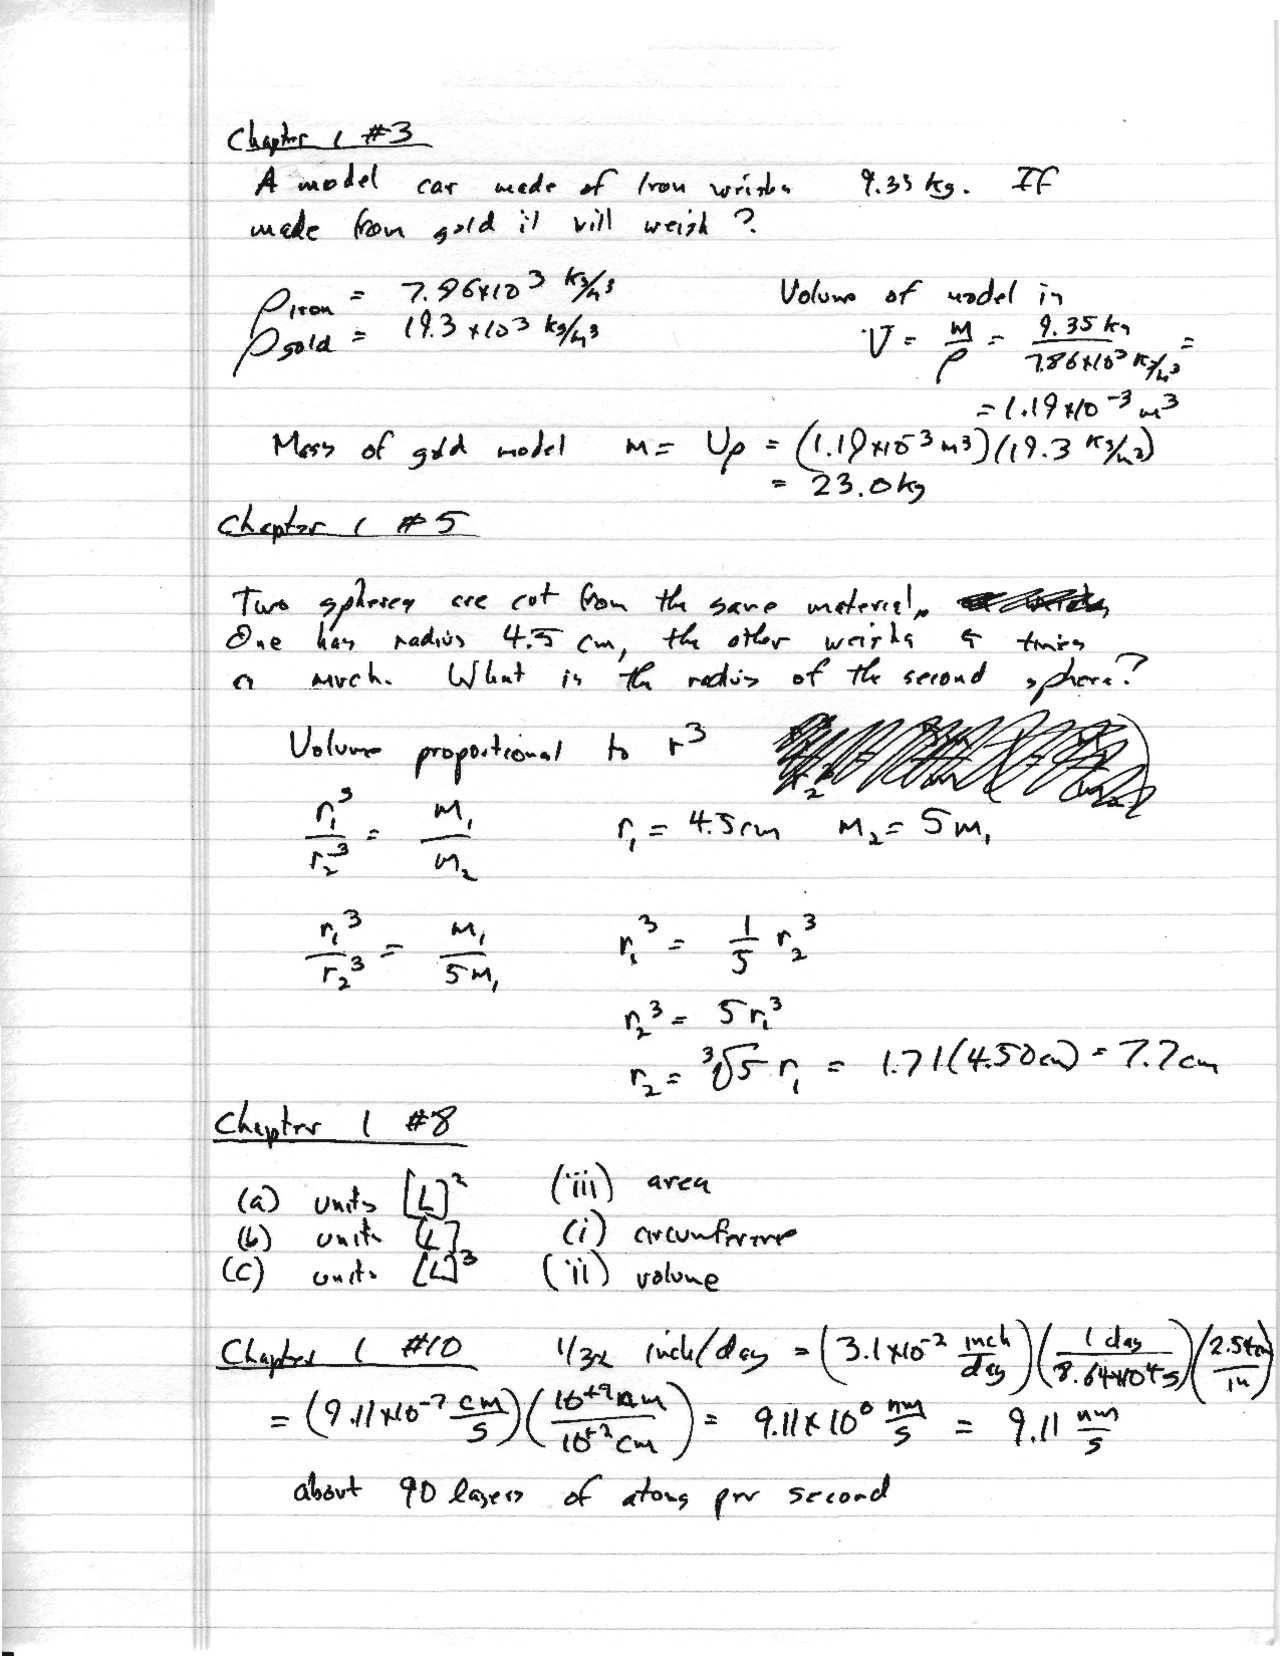 Chapter 1 #3
A model car made of Iron weighs 9.35 kg. If
made from gold it will weigh?
ρ_iron = 7.86×10^3 kg/m^3
ρ_gold = 19.3×10^3 kg/m^3
Volume of model is
V = m/ρ = 9.35 kg / 7.86×10^3 kg/m^3 =
= 1.19×10^-3 m^3
Mass of gold model m = Vρ = (1.19×10^-3 m^3)(19.3 kg/m^3)
= 23.0 kg
Chapter 1 #5
Two spheres are cut from the same material.
One has radius 4.5 cm, the other weighs 5 times
as much. What is the radius of the second sphere?
Volume proportional to r^3
r_1^3/r_2^3 = m_1/m_2 r_1 = 4.5cm m_2 = 5m_1
r_1^3/r_2^3 = m_1/5m_1 r_1^3 = 1/5 r_2^3
r_2^3 = 5r_1^3
r_2 = ³√5 r_1 = 1.71(4.50cm) = 7.7cm
Chapter 1 #8
(a) units [L]^2 (iii) area
(b) units [L] (i) circumference
(c) units [L]^3 (ii) volume
Chapter 1 #10 1/32 inch/day = (3.1×10^-2 inch/day)(1 day/8.64×10^4 s)(2.54cm/in)
= (9.11×10^-7 cm/s)(10^+9 nm/10^+2 cm) = 9.11×10^0 nm/s = 9.11 nm/s
about 90 layers of atoms per second